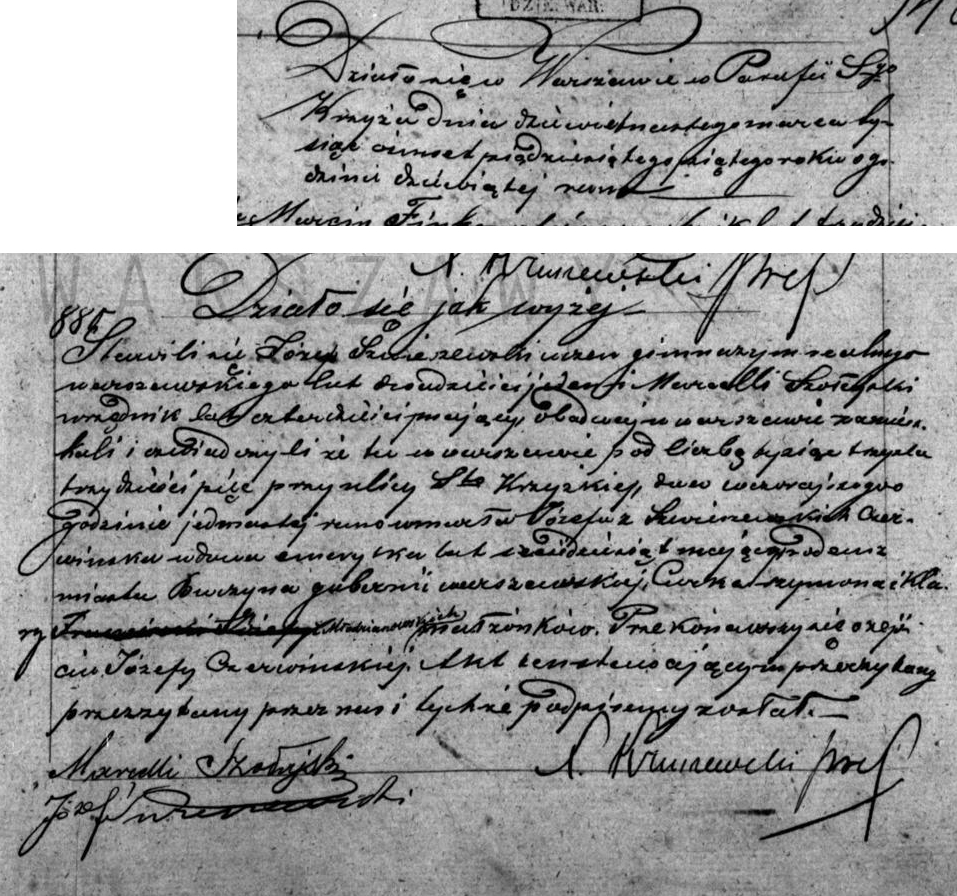 DZIE. WAR.
Działo się w Warszawie w Parafii Sgo
Krzyża dnia dziewiętnastego marca ty-
siąc ośmset pięćdziesiątego piątego roku o go-
dzinie dziewiątej rano
Marcin
A. Kruszewski
WARSZAWY
Działo się jak wyżej
885
Stawili się Józef uczeń gimnazym realnego
warszawskiego lat dwadzieścia jeden i Marcelli Szołajski
urzędnik lat czterdzieści mający, obadwaj w warszawie zamiesz-
kali i oświadczyli że tu w warszawie pod liczbą tysiąc trzysta
trzydzieści pięć przy ulicy Sto Krzyzkiej, dnia wczorajszego o
godzinie jedenastej rano umarła Józefa z Czer-
wińska wdowa emerytka lat sześdziesiąt mająca, rodem z
miasta Kuczyna gubernii warszawskiej, Córka Szymona i Kla-
ry małżonków. Przekonawszy się o zejś-
ciu Józefy Czerwińskiej. Akt ten stawającym przeczytany
przeczytany przez nas i tychże podpisany został.
Marcelli Szołajski A. Kruszewski
Józef